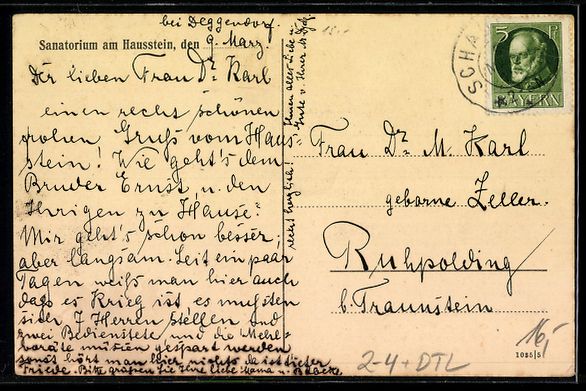 bei Deggendorf.
Sanatorium am Hausstein, den 9. März
Der lieben Frau Dr. Karl
einen recht schönen
frohen Gruß vom Haus-
stein! Wie geht's dem
Bruder Ernst u. den
Ihrigen zu Hause?
Mir geht's schon besser,
aber langsam. Seit ein paar
Tagen weiß man hier auch
daß es Krieg ist es mußten
sich 7 Herren stellen und
zwei Bedienstete und die Mehl-
vorräte müssen gespart werden
sonst hört man hier nichts da ist tiefer
Friede. Bitte grüßen Sie Ihre liebe Mama u.
Ihnen alles Liebe u.
Gute v. Ihrer
recht herzlich!
15.-
5 Pf.
BAYERN
SCHA
Frau Dr. M. Karl
geborne Zeller.
Ruhpolding
b. Traunstein
16,-
1035/5
2-4 + DTL